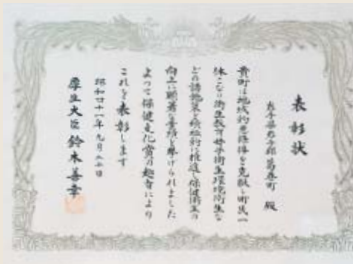 表彰状
岩手県岩手郡葛巻町 殿
貴町は地域的悪条件を克服し町民一
体となり衛生教育母子衛生環境衛生な
どの諸施策を積極的に推進し保健衛生の
向上に顕著な業績を挙げられました
よつて保健文化賞の趣旨により
これを表彰します
昭和四十一年九月二十日
厚生大臣 鈴木善幸